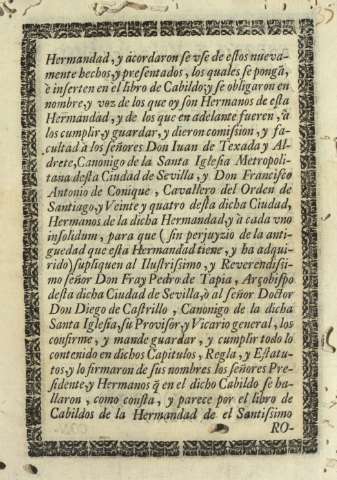 Hermandad, y acordaron se vſe de eſtos nueva-
mente hechos, y preſentados, los quales ſe pongã,
è inſerten en el libro de Cabildo; y ſe obligaron en
nombre, y voz de los que oy ſon Hermanos de eſta
Hermandad, y de los que en adelante fueren, à
los cumplir, y guardar, y dieron comiſsion, y fa-
cultad à los ſeñores Don Iuan de Texada y Al-
drete, Canonigo de la Santa Igleſia Metropoli-
tana deſta Ciudad de Sevilla, y Don Franciſco
Antonio de Conique, Cavallero del Orden de
Santiago, y Veinte y quatro deſta dicha Ciudad,
Hermanos de la dicha Hermandad, y à cada vno
inſolidum, para que (ſin perjuyzio de la anti-
guedad que eſta Hermandad tiene, y ha adqui-
rido) ſupliquen al Iluſtriſsimo, y Reverendiſsi-
mo ſeñor Don Fray Pedro de Tapia, Arçobiſpo
deſta dicha Ciudad de Sevilla, ò al ſeñor Doctor
Don Diego de Caſtrillo, Canonigo de la dicha
Santa Igleſia, ſu Proviſor, y Vicario general, los
confirme, y mande guardar, y cumplir todo lo
contenido en dichos Capitulos, Regla, y Eſtatu-
tos, y lo firmaron de ſus nombres los ſeñores Pre-
ſidente, y Hermanos q̃ en el dicho Cabildo ſe ha-
llaron, como conſta, y parece por el libro de
Cabildos de la Hermandad de el Santiſsimo
RO-